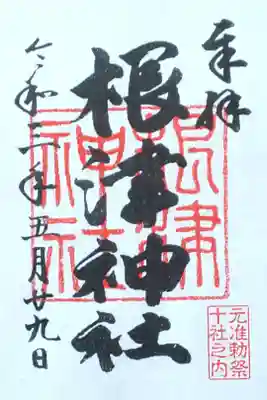 奉拝
元准勅祭
十社之内
根津神社
根津
神社
令和二年五月廿九日